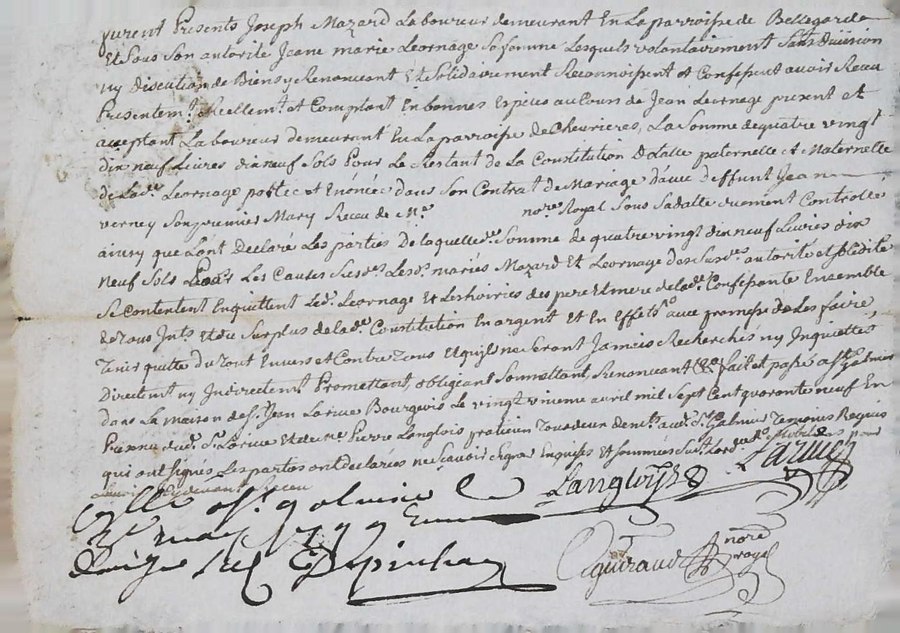 furent Presents Joseph Mazard Laboureur demeurant En La parroisse de Bellegarde
Et sous son autorité Jeane marie Leornage sa femme Lesquels volontairement sans division
ny discution de Biens y Renonceant Et solidairement Reconnoissent et Confessent avoir Receu
Presentemt. Reellemt. et Comptant En bonnes Espèces au Cours de Jean Leornage present et
aceptant Laboureur demeurant En La parroisse de Chevrieres, La somme de quatre vingt
dix neuf Livres dix neuf sols Pour Le Restant de La Constitution Dotalle paternelle et Maternelle
de Lade. Leornage portée et Enoncée dans son Contrat de Mariage d'avec deffunt Jean
verney son premier Mary Receu de Me. nore. Royal sous sa datte duement Controllé
ainsy que Lont declaré Les parties de laquelle de. somme de quatre vingt dix neuf Livres dix
neuf sols Pour Les Causes susdes. Lesd. mariés Mazard Et Leornage des susdes. autorité et solidité
se Contentent Enquittent Led. Leornage Et Les hoiries des pere et mere de lade. Confessante Ensemble
de tous Jnts. et du surplus de lade. Constitution En argent Et En Effets avec promesse de Les faire
Tenir quitte du tout Envers et Contre tous et quils ne seront Jamais Recherchés ny Inquiettés
directemt ny Indirectemt Promettant, obligeant soumettant, Renonceant &a fait et passé a St. galmier
dans La maison de sr. Jean Larive Bourgeois Le vingt unieme avril mil sept Cent quarante neuf En
Presence dud. sr. Larive et de me Pierre Langlois praticien tous deux demts. aud. St. Galmier Temoins Requis
qui ont signés Les parties ont declarées ne scavoir signer Enquises Et sommées
Langlois Larive
Cllé a St. galmier Le
3e may 1749
guiraud nore royal